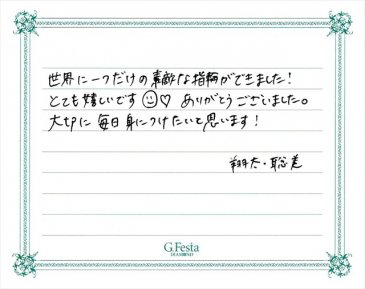 世界に一つだけの素敵な指輪ができました!
とても嬉しいです☺♡ ありがとうございました。
大切に毎日身につけたいと思います!
翔太・聡美
G.Festa
DIAMOND